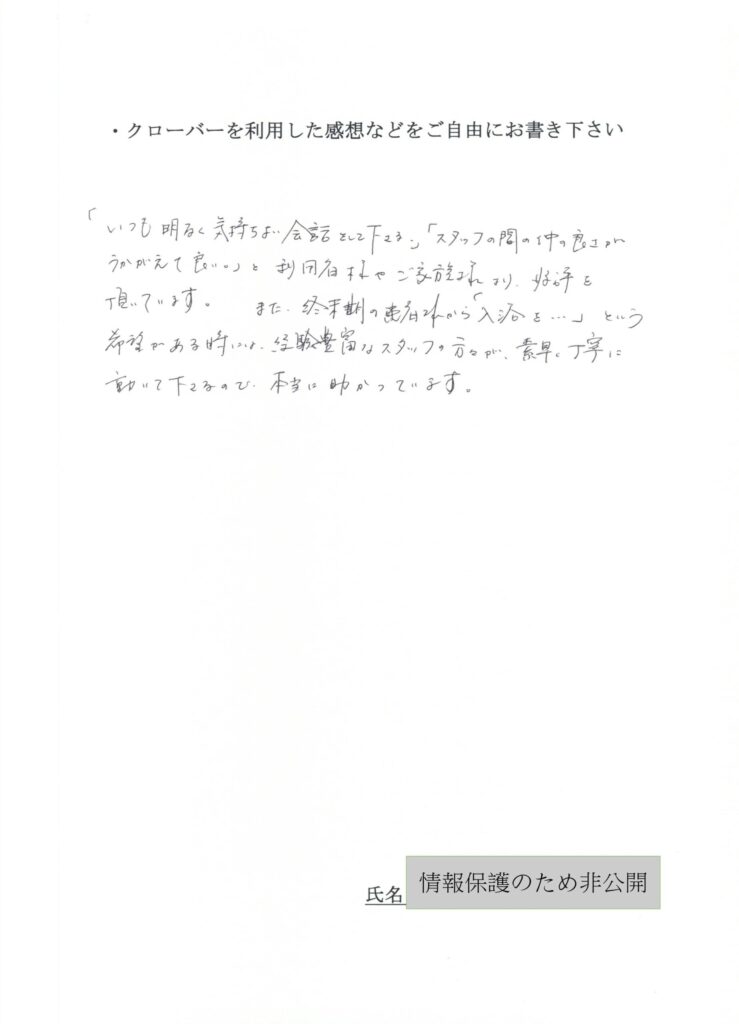 ・クローバーを利用した感想などをご自由にお書き下さい
「いつも明るく気持ちよい会話をして下さる。」「スタッフの間の仲の良さが
うかがえて良い。」と利用者様やご家族様より、好評を
頂いています。 また、終末期の患者様から「入浴を…」という
希望がある時には、経験豊富なスタッフの方々が、素早く丁寧に
動いて下さるので、本当に助かっています。
氏名 情報保護のため非公開